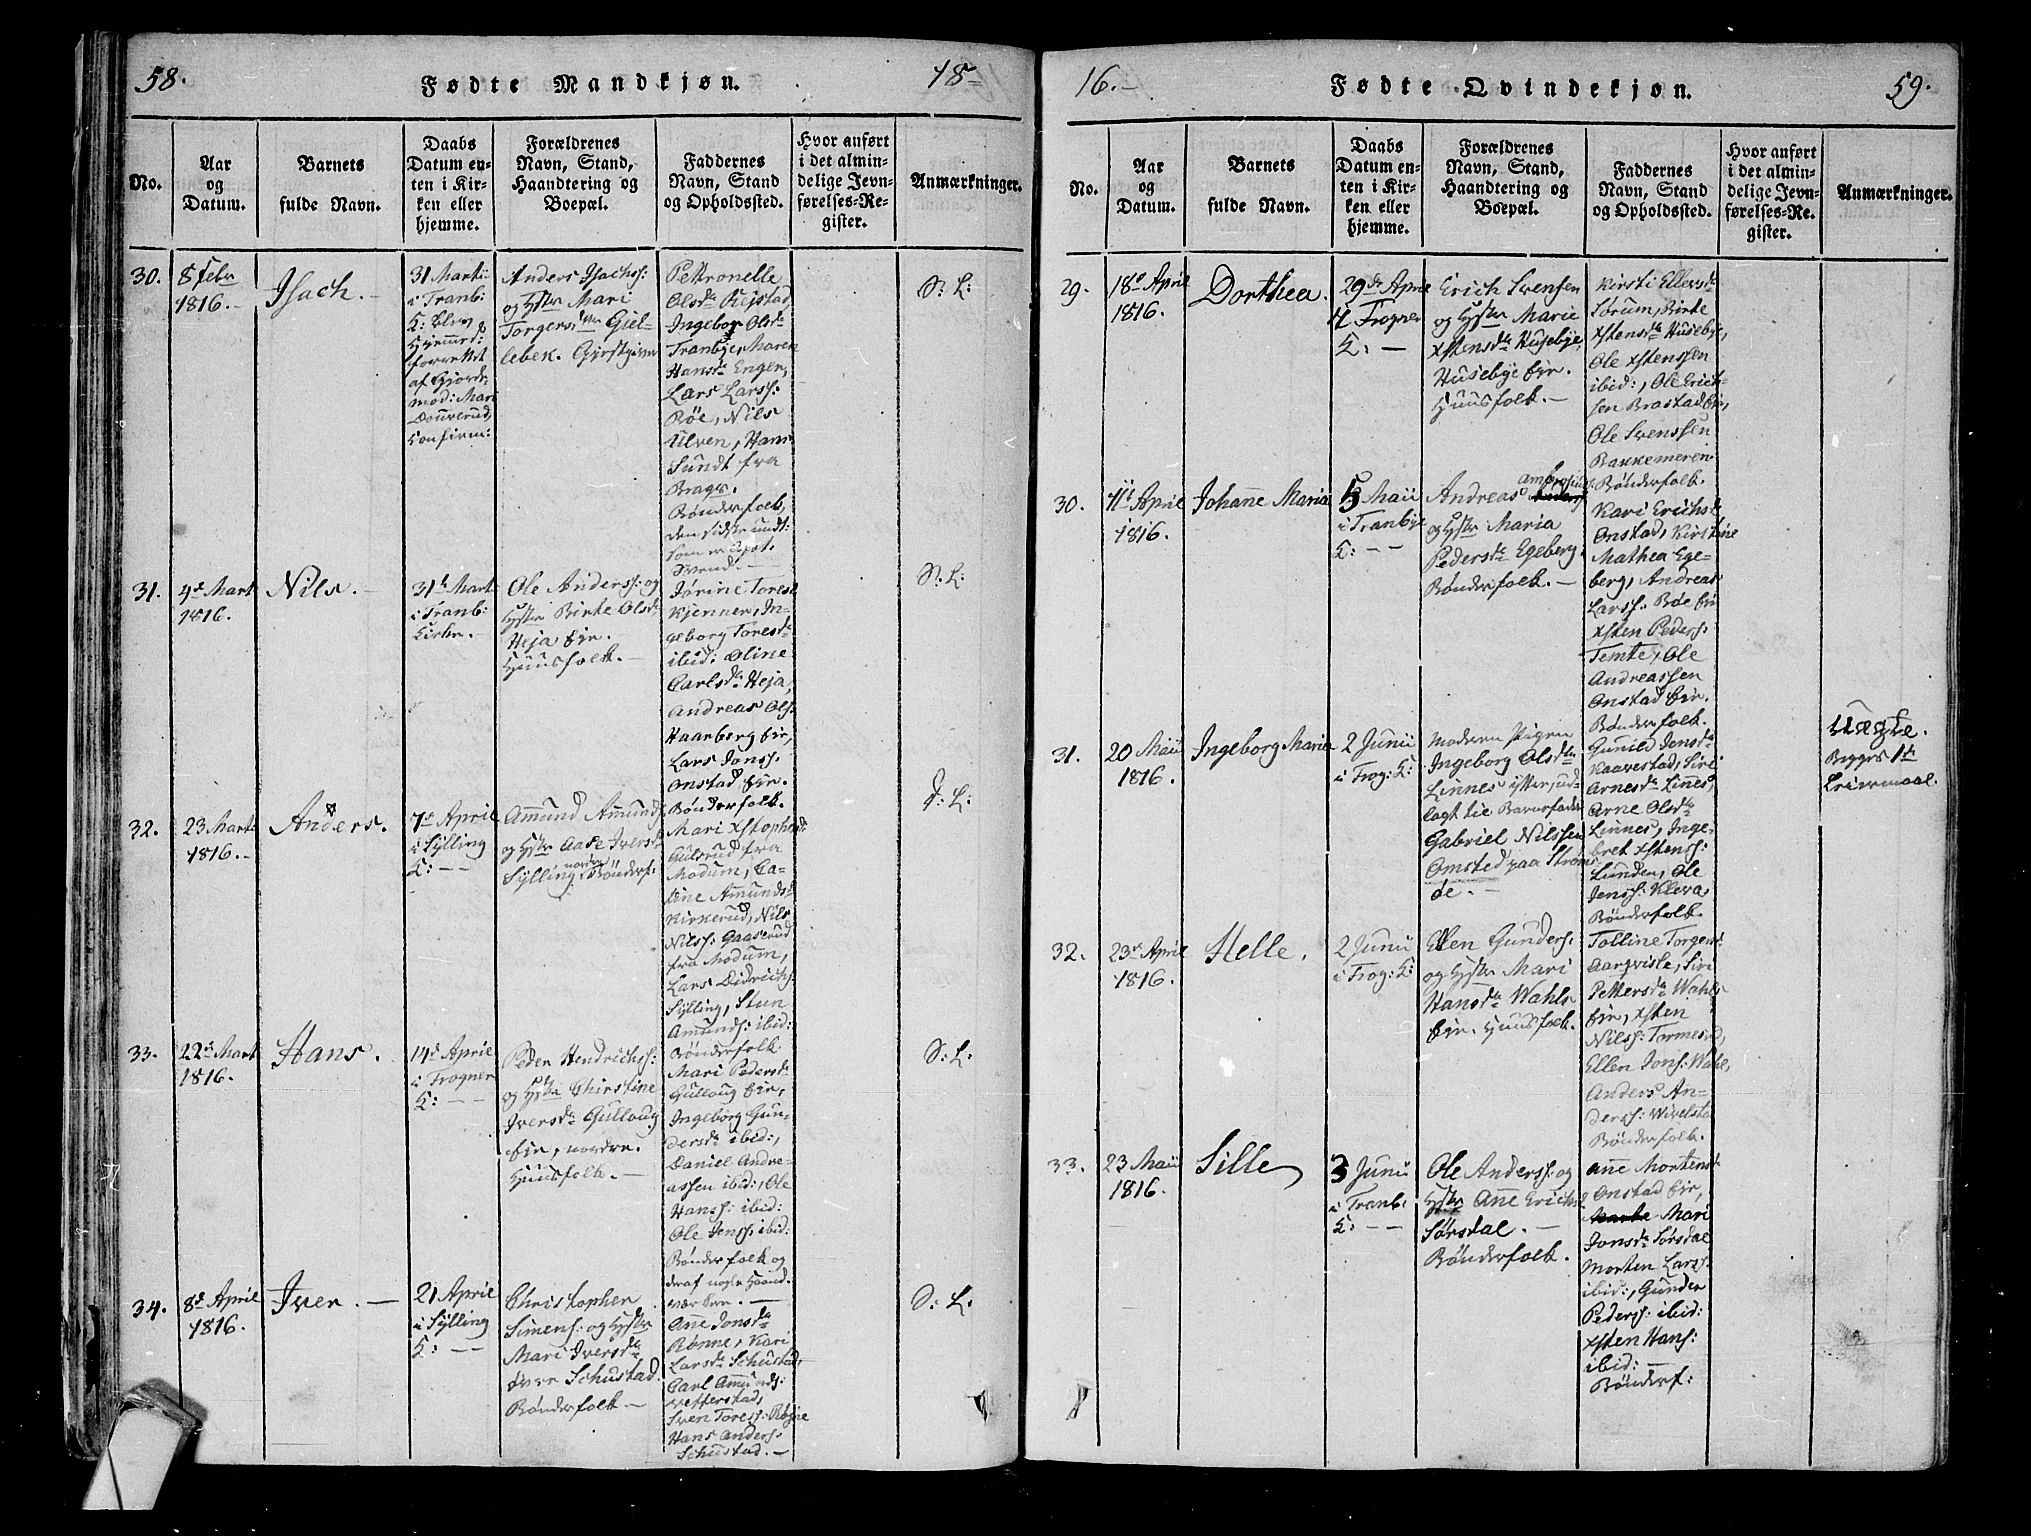 58.
Fødte Mandkjøn.
18-
No.
Aar
og
Datum.
Barnets
fulde Navn.
Daabs
Datum en-
ten i Kir-
ken eller
hjemme.
Forældrenes
Navn, Stand,
Haandtering og
Boepæl.
Faddernes
Navn, Stand
og Opholdssted.
Hvor anført
i det almin-
delige Jevn-
førelses-Re-
gister.
Anmærkninger.
30.
8 Febr
1816.-
Isach.-
31 Martii
i Tranb:
K: blev
hjemmed:
forrettet
af Giord-
mod: Mari
Confirm:
Anders Isachs:
og Hstr Mari
Torgersdtter Giel-
lebek. Giestgiver
Pettronelle
Olsda Rejstad
Ingebor Olsda
Tranbye, Maren
Hansda Enger,
Lars Larss:
Røe, Nils
Ulven, Hans
Sundt fra
Bragr.
Bønderfolk,
den sidste undt:
som er
S: L:
31.
4de Mart
1816.
Nils.-
31te Mart
i Tranb:
Kirke.-
Ole Anderss: og
Hstr Birte Olsda
Heja eir.
Huusfolk.-
Jørine Toresd
Kjenner, In-
geborg Toresda
ibid: Oline
Carlsda Heja,
Andreas Ols:
Haarberg eir,
Lars Jonss:
Onstad eir.
Bønderfolk.
S: L:
32.
23 Marti
1816.-
Anders.
7de April
i Sylling
K: --
Amund Amunds
og Hstr Aase Iversd
nordre
Sylling. Bønderf:
Mari Xstophersd
Gulsrud fra
Modum, Ca-
tine Amundsd
Kirkerud, Nils
Nilss: Gaaserud
fra Modum,
Lars Didrichs:
Sylling, Stun
Amunds: ibid:
Bønderfolk
S: L:
33.
22de Mart
1816.
Hans.
14de April
i Frogner
K: --
Peder Hendrichss:
og Hstr Christine
Iversda Gulloug
eir, nordre.
Huusfolk.-
Mari Pedersda
Gulloug eir,
Ingeborg Gun-
dersda ibid:,
Daniel Andre-
assen ibid:, Ole
Hanss: ibid:
Ole Jenss: ibid:
Bønderfolk og
deraf nogle Haand-
værker.-
S: L:
34.
8de April
1816.
Iver.-
21 April
i Sylling
K: --
Christopher
Simens: og Hstr
Mari Iversda
øvre Schustad.
Bønderfolk-
Ane Jonsda
Rønne, Kari
Larsda Schustad,
Carl Amunds:
Vefferstad,
Sven Toress: Røgne
Hans Anders:
Schustad.-
S: L:
16.-
Fødte Qvindekjøn.
59.
No.
Aar
og
Datum.
Barnets
fulde Navn.
Daabs
Datum en-
ten i Kir-
ken eller
hjemme.
Forældrenes
Navn, Stand,
Haandtering og
Boepæl.
Faddernes
Navn, Stand
og Opholdssted.
Hvor anført
i det almin-
delige Jevn-
førelses-Re-
gister.
Anmærkninger.
29.
18de April
1816.
Dorthea.
29de April
i Frogner
K: -
Erich Svensen
og Hstr Marie
Xstensda Husebye,
Husebye eir.
Huusfolk.-
Kirsti Ellersda
Sørum, Birte
Xstensda Husebye,
Ole Xstenssen
ibid:, Ole Erich-
sen Brastad eir,
Ole Svenssen
Bakkemeren
Bønderfolk.
30.
11te April
1816.
Johanne Maria
5 Maii
i Tranbye
K: --
Andreas Ambrosius
og Hstr Maria
Pedersda Egeberg.
Bønderfolk.-
Kari Erichsd
Onstad, Kirstine
Mathea Ege-
berg, Andreas
Larss: Bøe eir
Xsten Peders:
Temte, Ole
Andreassen
Onstad eir.
Bønderfolk.
31.
20 Maii
1816.
Ingeborg Marie
2 Junii
i Frog: K:
Moderen Pigen
Ingeborg Olsda
Linnes ibid:, ud-
lagt til Barnefader
Gabriel Nilssen
Omsted paa Strøms-
de.-
Gunild Jensda
Kaavestad, Siri
Arnesda Linnes,
Arne Olsda
Linnes, Inge-
bret Xstens:
Lunden, Ole
Jenss: Kleva
Bønderfolk.
Uægte.
Begges 1te
Leiermaal.
32.
23de April
1816.
Helle.
2 Junii
i Frog: K:
Ellen Gunders:
og Hstr Mari
Hansda Wahls
eir. Huusfolk.
Tolline Torgersd
Aarqvisle, Siri
Pettersda Wahls
eir, Xsten
Nilss: Tormerud,
Ellen Jons: Wahl,
Anders An-
derss: Wivelstad
Bønderfolk.
33.
23 Maii
1816.
Sille
3 Junii
i Tranb:
K: --
Ole Anderss: og
Hstr Ane Erichsd
Sørsdal.-
Bønderfolk.
Ane Mortensd
Onstad eir,
Mari
Jonsda Sørsdal
Morten Larss:
ibid:, Gunder
Peders: ibid:
Xsten Hans:
ibid: -
Bønderf: